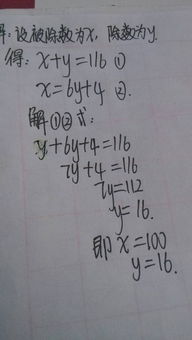 解:设被除数为x,除数为y.
得: x+y=116 ①
x=6y+4 ②.
解①②式:
y+6y+4=116
7y+4=116
7y=112
y=16.
即 x=100
y=16.